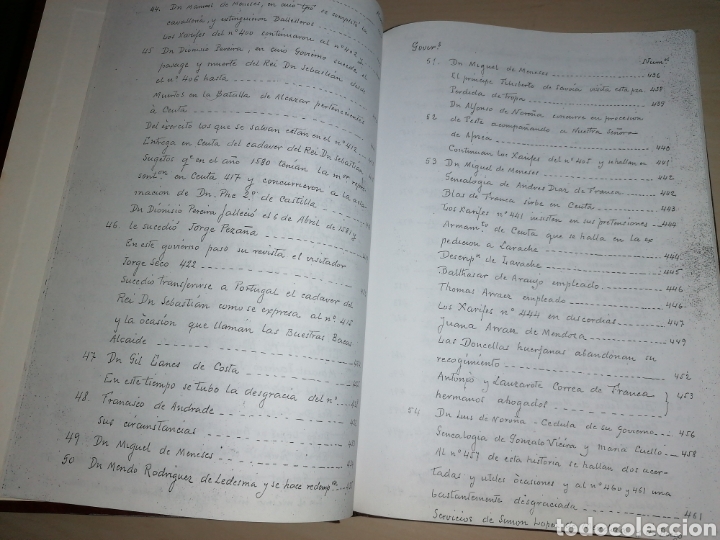 44. Dn Manuel de Meneses, en cuio
cavalleria, y extinguieron Ballesteros
Los Xarifes del nº 400 continuaron al
45 Dn Dionisio Pereira, en cuio Govierno sucede el
pasage y muerte del Rei Dn Sebastián desde
el nº 406 hasta
Muertos en la Batalla de Alcazar pertenecientes
á Ceuta
Del exercito los que se salvan están en el nº 412
Entrega en Ceuta del cadaver del Rei Dn Sebastián
Sugetos qe en el año 1580 tenían la mor
en Ceuta 417 y concurrieron a la
macion de Dn Phe 2.º de Castilla
Dn Dionisio Pereira falleció el 6 de Abril de 1581 y
46 le sucedió Jorge Pezaña
En este govierno paso su revista el visitador
Jorge Seco 422
Sucedio transferirse a Portugal el cadaver del
Rei Dn Sebastián como se expresa al nº 415
y la ocasión que llaman las Buestras Bacas
Alcaide
47 Dn Gil Eanes de Costa
En este tiempo se tubo la desgracia del nº
48. Francisco de Andrade
Sus circunstancias
49 Dn Miguel de Meneses
50 Dn Mendo Rodriguez de Ledesma y se hace
Governs Num.os
51. Dn Miguel de Meneses 436
El principe Filiberto de Savoia visita esta pza 438
Perdida de tropa 439
Dn Alfonso de Noroña concurre en procesion
52 de Peste acompañando a Nuestra Señora
de Africa 440
Continuan los Xarifes del nº 405 y se hallan en 441
53 Dn Miguel de Meneses 442
Genealogia de Andres Diaz de Franca 442
Blas de Franca sirbe en Ceuta 443
Los Xarifes nº 441 insisten en sus pretensiones 444
Armamto de Ceuta que se halla en la ex
pedicion a Larache 444
Descripn de Larache 445
Balthasar de Araujo empleado 446
Thomas Arraez empleado 446
Los Xarifes nº 444 en discordias 447
Juana Arraez de Mendoza 449
Las Doncellas huerfanas abandonan su
recogimiento 452
Antonio y Lanzarote Correa de Franca
hermanos ahogados 453
54 Dn Luis de Noroña - Cedula de su Govierno 456
Genealogia de Gonzalo Vieira y Maria Cuello 458
Al nº 459 de esta historia se hallan dos acer
tadas y utiles ocasiones y al nº 460 y 461 una
bastantemente desgraciada 461
Servicios de Simon Lopez
todocoleccion